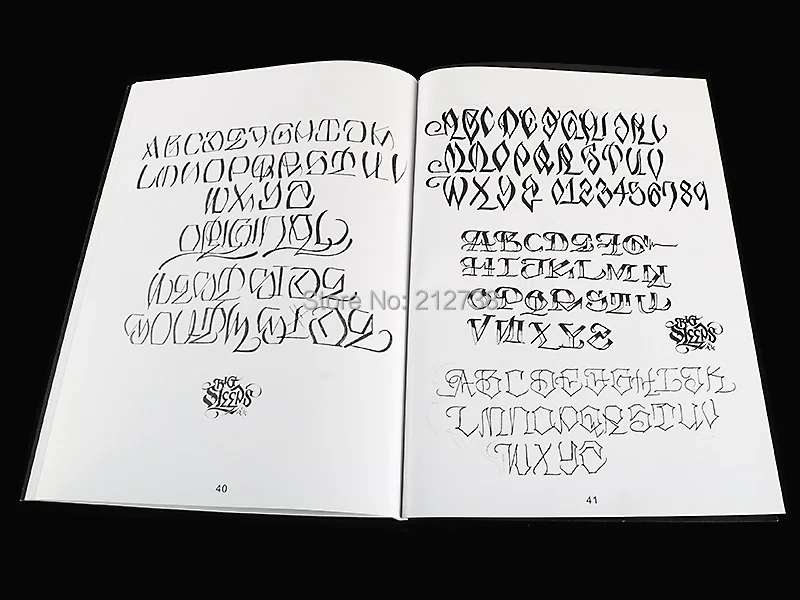 ABCDEFGHIJK
LMNOPQRSTUV
WXYZ
ORIGINAL
BIG
SLEEPS
40
ABCDEFGHIJKL
MNOPQRSTUV
WXYZ 0123456789
ABCDEFG
HIJKLMN
OPQRSTU
VWXYZ
BIG
SLEEPS
ABCDEFGHIJK
LMNOPQRSTUV
WXYZ
41
Store No: 212738